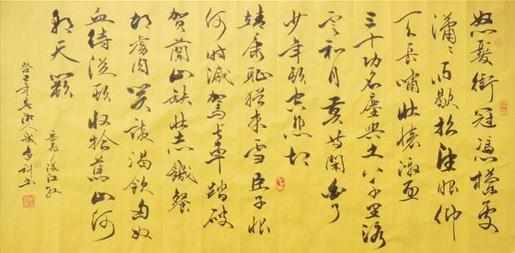 怒髮衝冠憑欄處
瀟瀟雨歇抬望眼仰
天長嘯壯懷激烈
三十功名塵與土八千里路
雲和月莫等閒白了
少年頭空悲切
靖康恥猶未雪臣子恨
何時滅駕長車踏破
賀蘭山缺壯志飢餐
胡虜肉笑談渴飲匈奴
血待從頭收拾舊山河
朝天闕
岳飛滿江紅